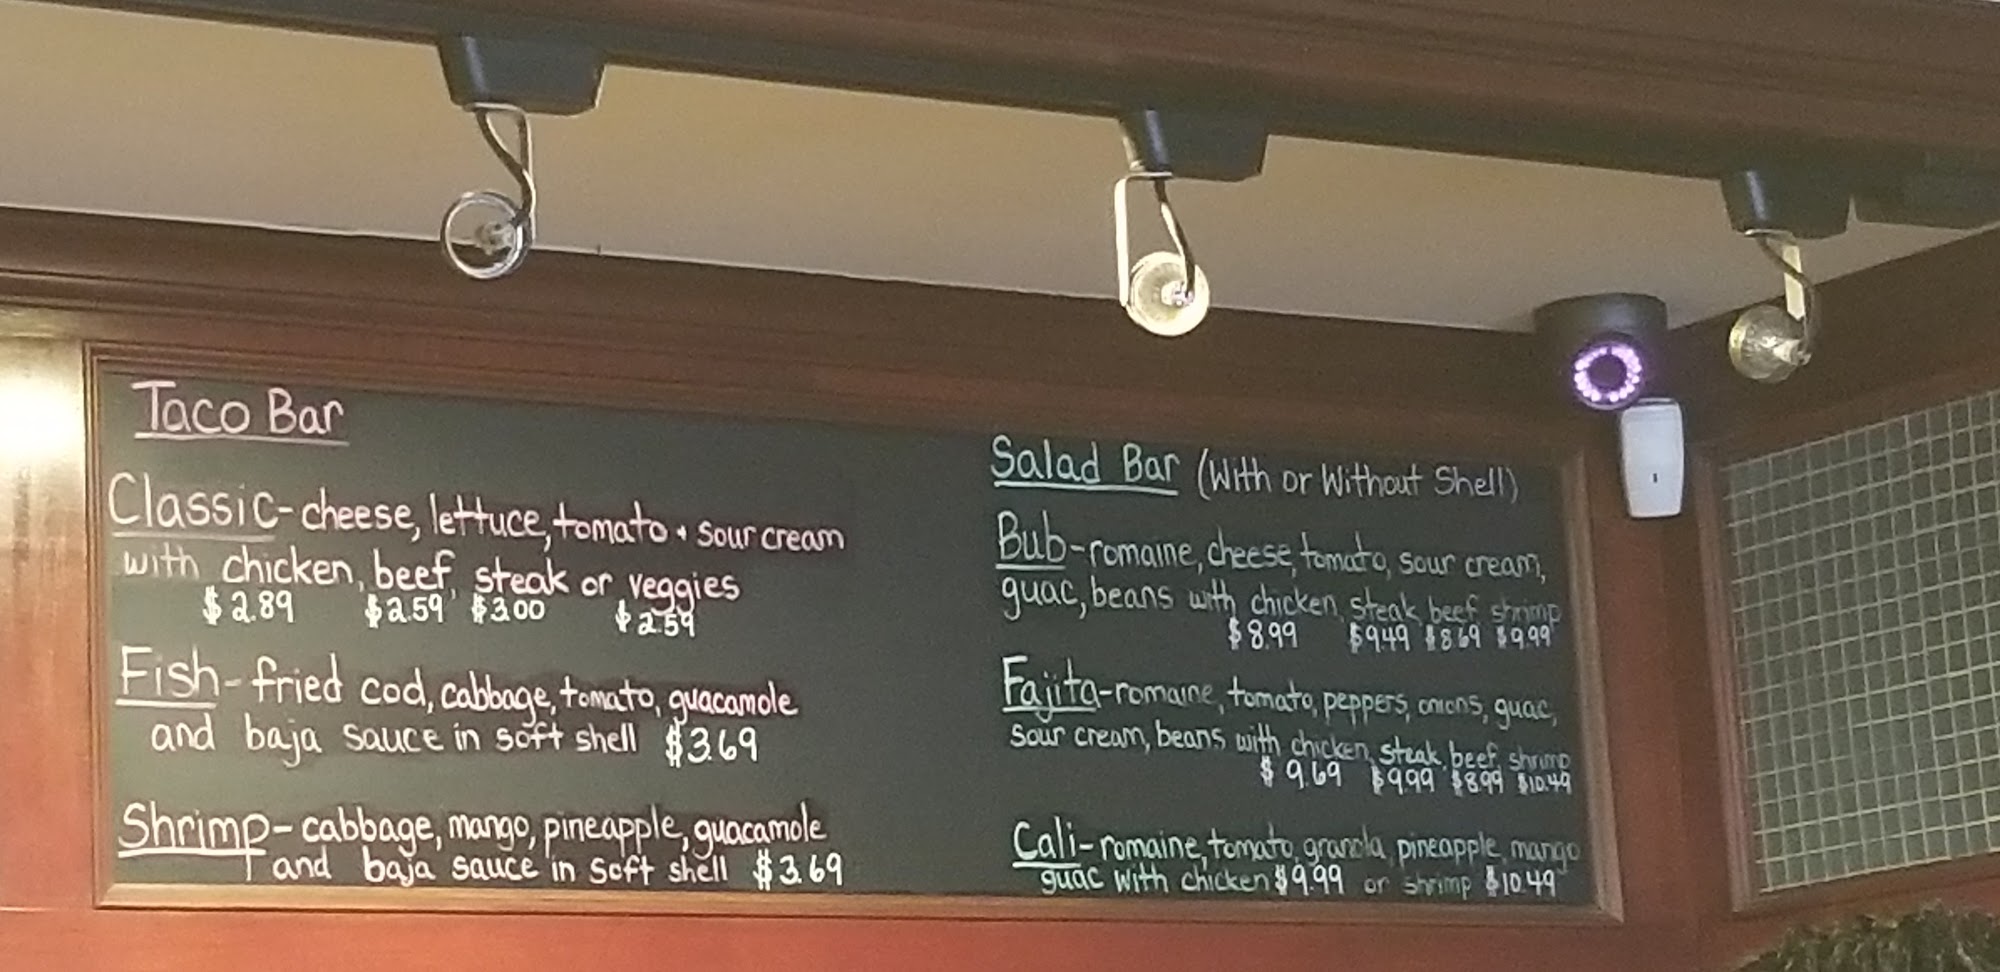 Taco Bar
Classic-cheese, lettuce, tomato + sour cream
with chicken, beef, steak or veggies
$2.89 $2.59 $3.00 $2.59
Fish-fried cod, cabbage, tomato, guacamole
and baja sauce in soft shell $3.69
Shrimp-cabbage, mango, pineapple, guacamole
and baja sauce in soft shell $3.69
Salad Bar (With or Without Shell)
Bub-romaine, cheese, tomato, sour cream,
guac, beans with chicken, steak, beef, shrimp
$8.99 $9.49 $8.69 $9.99
Fajita-romaine, tomato, peppers, onions, guac,
sour cream, beans with chicken, steak, beef, shrimp
$9.69 $9.99 $8.99 $10.49
Cali-romaine, tomato, granola, pineapple, mango
guac with chicken $9.99 or shrimp $10.49